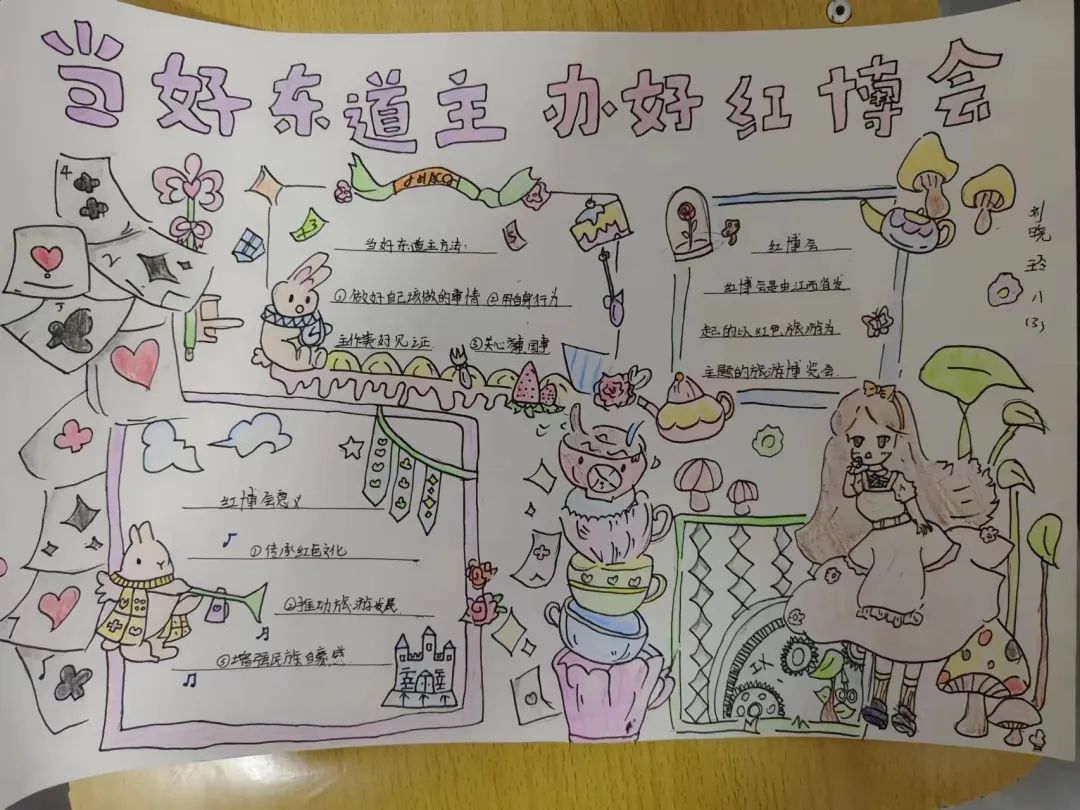 当好东道主 办好红博会
当好东道主方法:
①做好自己该做的事情 ②用自身行为
主作美好见证 ③关心国事
红博会
红博会是由江西省发
起的以红色旅游为
主题的旅游博览会
刘晓玲 八(3)
红博会意义
①传承红色文化
②推动旅游发展
③增强民族自豪感
4
2
3
5
IX